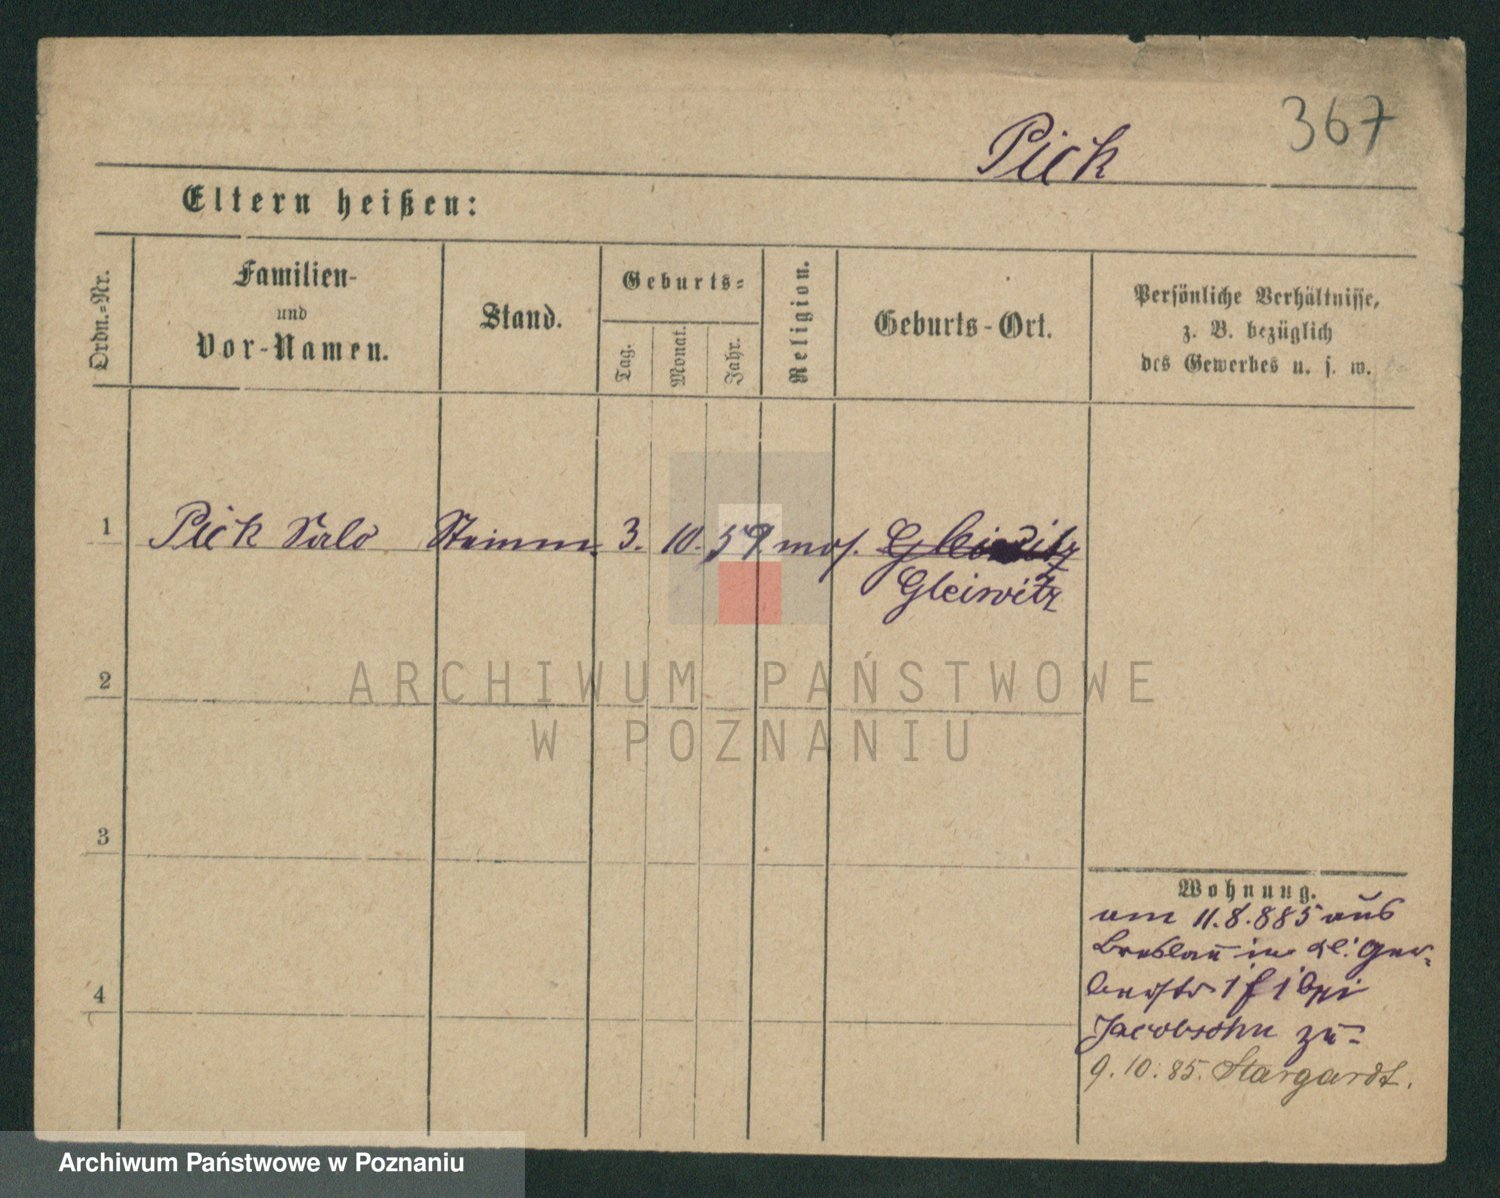 367
Pick
Eltern heißen:
Ordn.-Nr.
Familien-
und
Vor-Namen.
Stand.
Geburts-
Tag.
Monat.
Jahr.
Religion.
Geburts-Ort.
Persönliche Verhältnisse,
z. B. bezüglich
des Gewerbes u. s. w.
1 Pick Salo 3. 10. 59 mos. Gleiwitz
Gleiwitz
2
ARCHIWUM PAŃSTWOWE
W POZNANIU
3
Wohnung.
am 11.8.885 aus
Breslau in kl. Ger-
berstr 1 f 1 bei
Jacobsohn zu-
4
9.10.85. Stargardt.
Archiwum Państwowe w Poznaniu